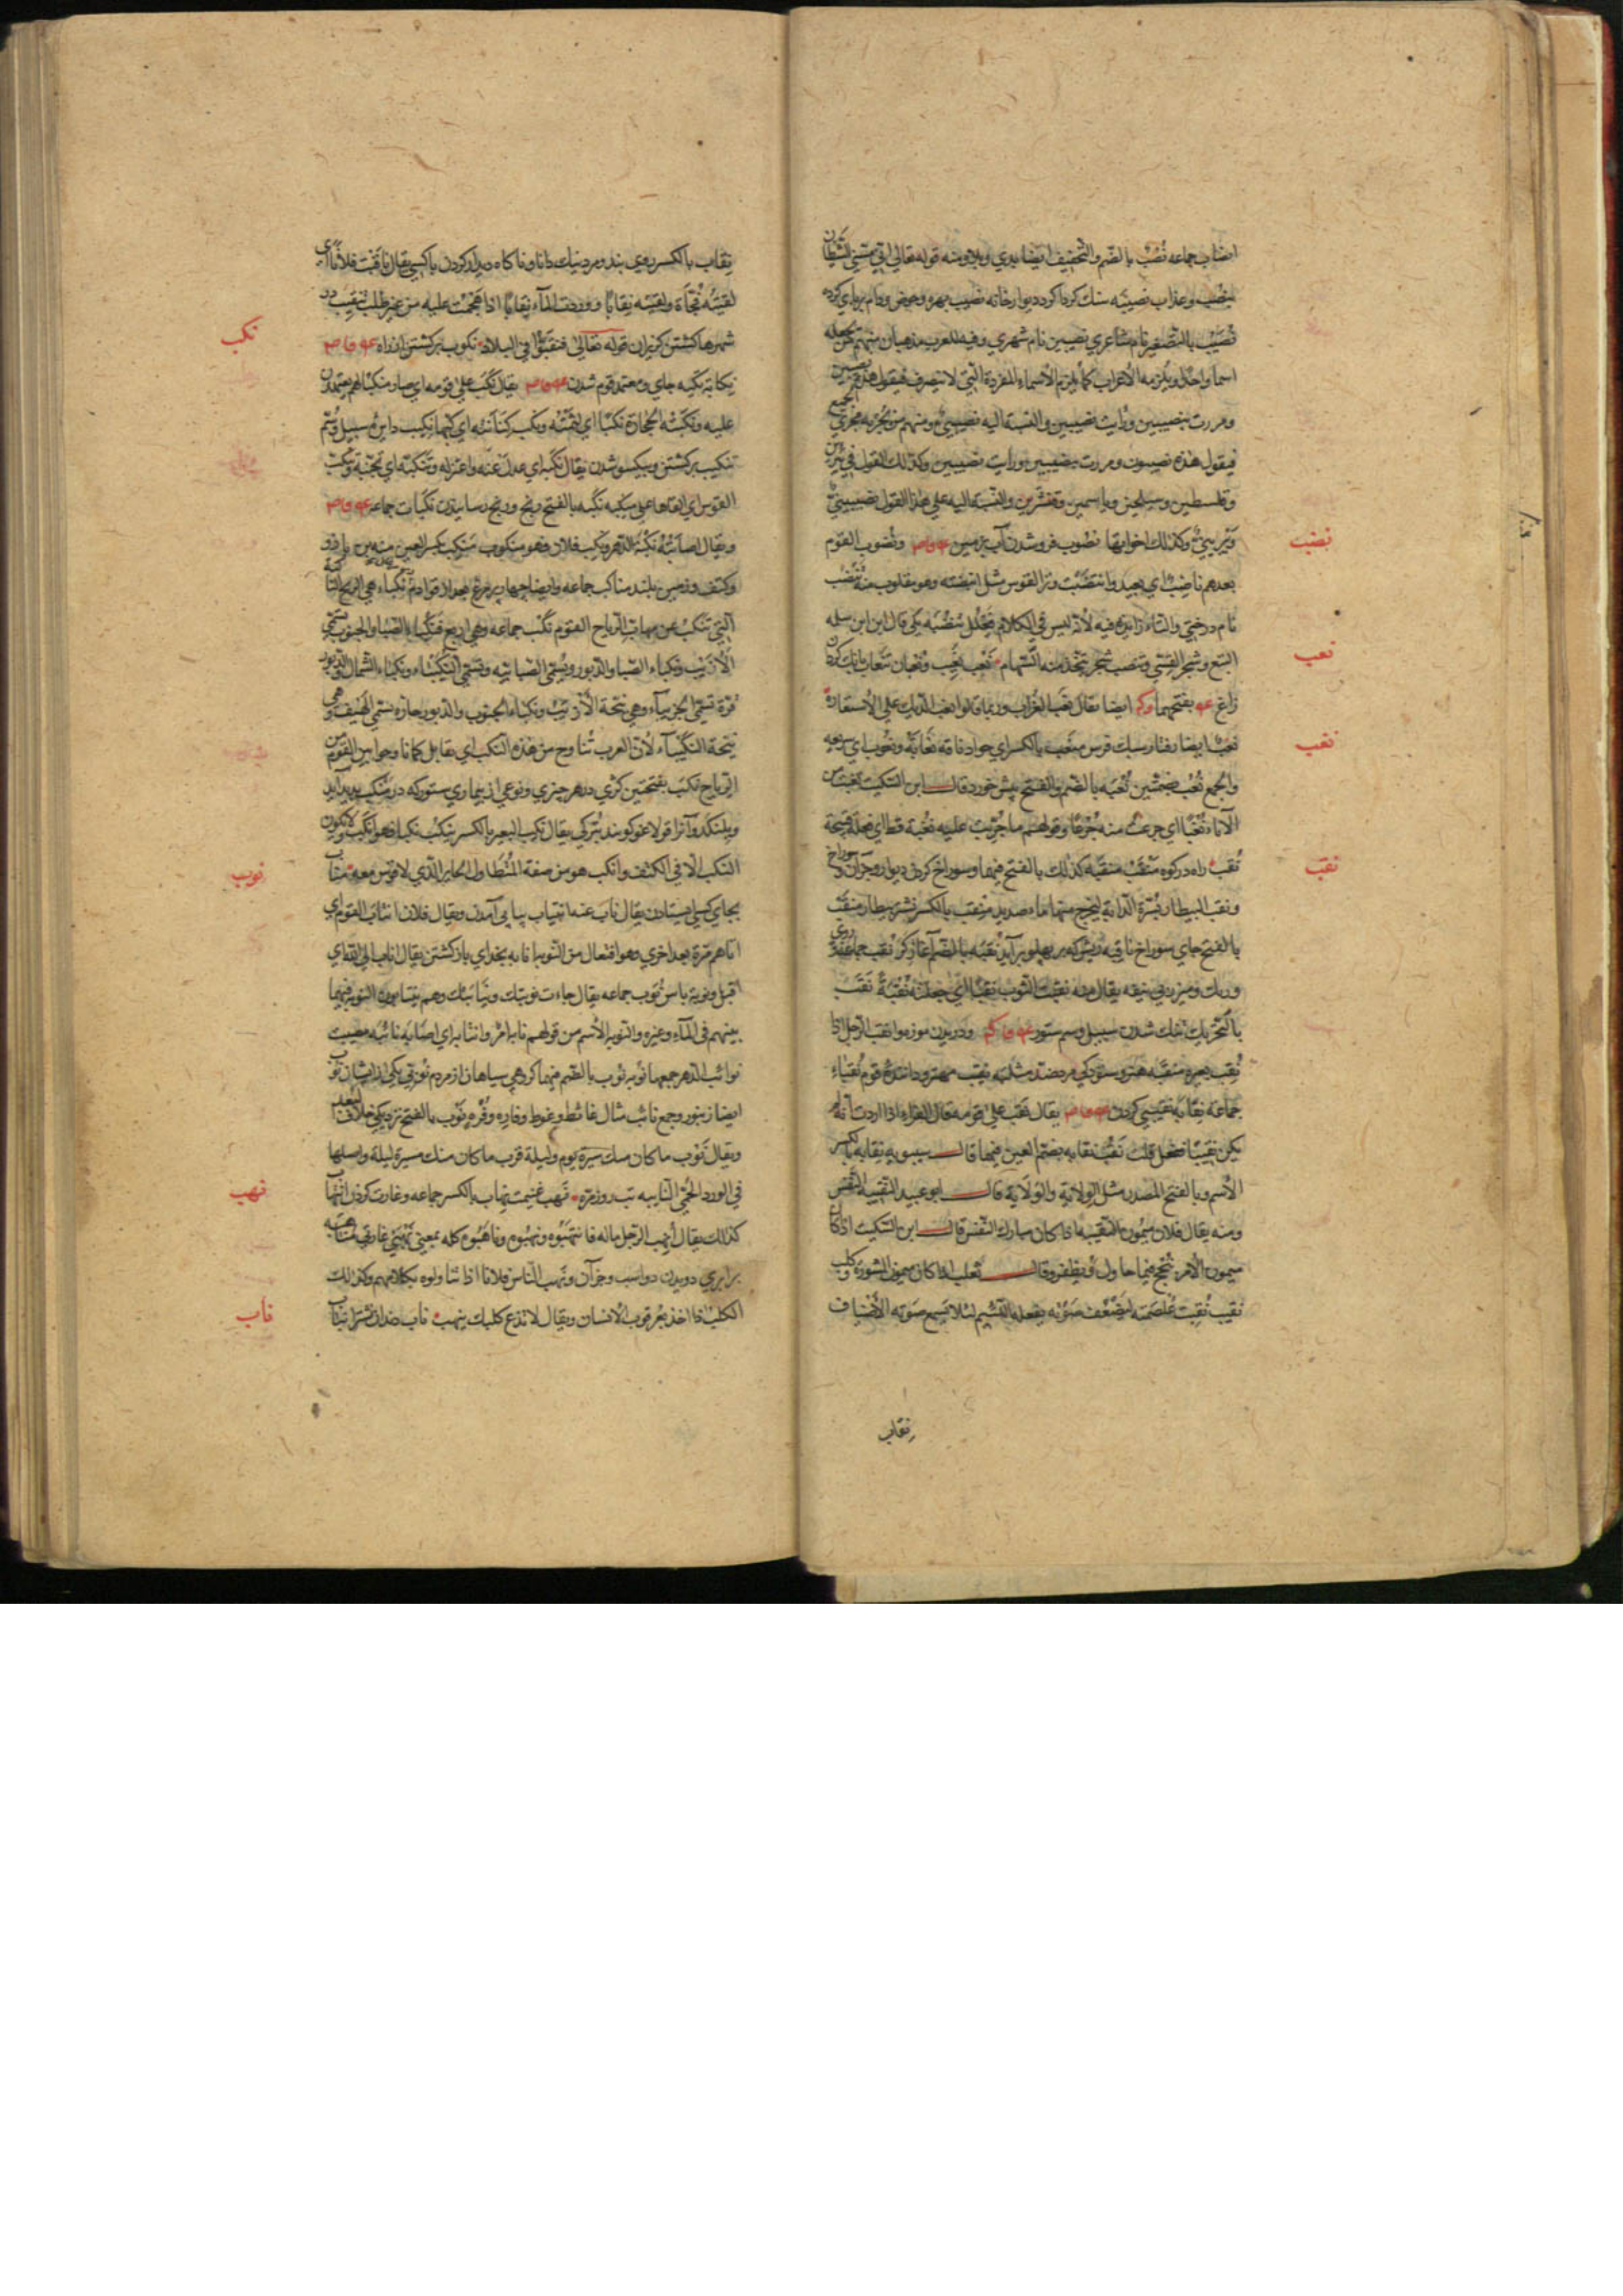 انصاب جماعه نُصُب بالضم والتخفيف ايضا بدي وبلا ومنه قوله تعالى اني مسني الشيطان
بنصب وعذاب نصيبه سنك كرداكرد ديوار خانه نصيب بهره وحوض ودام برپاي كرده
نُصَيب بالتصغير نام شاعري نصيبين نام شهري وفيه للعرب مذهبان منهم من يجعله
اسما واحدا ويلزمه الاعراب كما يلزم الاسماء المفردة التي لا تنصرف فيقول هذه نصيبين
ومررت بنصيبين ورايت نصيبين والنسبة اليه نصيبي ومنهم من يجريه مجري الجمع
فيقول هذه نصيبون ومررت بنصيبين ورايت نصيبين وكذلك القول في يبرين
وفلسطين وسيلحين وياسمين وقنسرين والنسبة اليه علي هذا القول نصيبيني
ويبريني وكذلك اخواتها نضوب فروشدن آب بزمين ونضوب القوم
نضب
بعدهم ناضب اي بعيد وانتضبت وتر القوس مثل انبضته وهو مقلوب منه تنضب
نام درختي والتاء زايده فيه لانه ليس في الكلام فعلل تنضبه يكي قال ابن سلمه
النبع وشجر القسي وتنضب شجر يتخذ منه السهام نعب نعيب ونعبان تنعاب بانك كردن
نعب
زاغ بفتحهما ايضا يقال نعب الغراب وربما قالوا نعب الديك علي الاستعارة
نعب ايضا رفتار سبك فرس منعب بالكسر اي جواد ناقة نعابة ونعوب اي سريعه
نغب
والجمع نعب بضمتين نغبه بالضم والفتح پيش خورد قال ابن السكيت نغبت من
الاناء نغبا اي جرعت منه جرعا وقولهم ما جربت عليه نغبة قط اي فعلة قبيحة
نقب راه در كوه منقب منقبه كذلك بالفتح فيهما وسوراخ كردن ديوار وجز آن وسوراخ
نقب
ونقب البيطار سرة الدابة ليخرج منها ماء صديد منقب بالكسر نشتر بيطار منقب
بالفتح جاي سوراخ ناقبه ريش كه بر پهلو برآيد نقبه بالضم آغاز كر نقب جماعة
ورنك وميزر بي نيفه يقال منه نقبت الثوب نقبا اي جعلته نقبة نقب
بالتحريك تنك شدن سپل وسم ستور ودريدن موزه وانقب الرجل اذا
نقب بعيره منقبه هنر وستودكي مردضد مثلبه نقيب مهتر وداننده قوم نقباء
جماعة نقابة نقيبي كردن يقال نقب علي قومه قال الفراء اذا اردت انه لم
يكن نقيبا ففعل قلت نقب نقابه بضم العين فيهما قال سيبويه نقابه بالكسر
الاسم وبالفتح المصدر مثل الولاية والولاية قال ابو عبيد النقيبه النفس
ومنه يقال فلان ميمون النقيبه اذا كان مبارك النفس قال ابن السكيت اذا كان
ميمون الامر ينجح فيما حاول ويظفر وقال ثعلب اذا كان ميمون المشورة وكلب
نقيب نقبت غلصمته ليضعف صوته يفعله اللئيم لئلا يسمع صوته الاضياف
نقاب
نقاب بالكسر روي بند ومرد نيك دانا وناكاه ديدار كردن باكسي يقال ناقبت فلانا اي
لقيته فجاة ولقيته نقابا ووردت الماء نقابا اذا هجمت عليه من غير طلب تنقيب در
شهرها كشتن كريزان قوله تعالى فنقبوا في البلاد نكوب بركشتن از راه
نكب
نكابة تكيه جاي ومعتمد قوم شدن يقال نكب علي قومه اي صار منكبا لهم يعتمدون
عليه ونكبته الحجارة نكبا اي لثمته ونكب كنانته اي كبها نكيب دايره سپل وسم
تنكيب بركشتن وبيكسو شدن يقال نكبه اي عدل عنه واعتزله وتنكبه اي تجنبه وتنكب
القوس اي القاها علي منكبه نكبه بالفتح رنج ورنج رسانيدن نكبات جماعه
ويقال اصابته نكبة الدهر ونكب فلان فهو منكوب منكب بكسر العين بن بازو
وكتف وزمين بلند مناكب جماعه وايضا چهار پر مرغ بعد از قوادم نكباء هي الريح الناكبة
التي تنكب عن مهاب الرياح القوم نكب جماعه وهي اربع فنكباء الصبا والجنوب تسمي
الازيب ونكباء الصبا والدبور وتسمي الصابيه وتسمي النكيباء ونكباء الشمال والدبور
قرة تسمي الجربياء وهي نيحة الازيب ونكباء الجنوب والدبور حارة تسمي الهيف وهي
نيحة النكيباء لان العرب تناوح من هذه النكب اي يقابل كما ناوحوا بين القوم من
الرياح نكب بفتحتين كژي در هر چيزي ونوعي از بيماري ستور كه در منكب پديد آيد
وبلنكد وآنرا قولاغو كويند بتركي يقال نكب البعير بالكسر ينكب نكبا فهو انكب ولا يكون
النكب الا في الكتف وانكب هو من صفة المتطاول الجاير الذي لا قوس معه مناب
نوب
بجاي كسي ايستادن يقال ناب عنه انتياب پياپي آمدن ويقال فلان انتاب القوم اي
اتاهم مرة بعد اخري وهو افتعال من النوب انابه بخداي بازكشتن يقال اناب الي الله اي
اقبل ونوبه پاس نوب جماعه يقال جاءت نوبتك ونيابتك وهم يتناوبون النوبه فيما
بينهم في الماء وغيره والنوبه الاسم من قولهم نابه امر وانتابه اي اصابه نائبه مصيبت
نوائب الدهر جمعها نوبه نوب بالضم فيهما كروهي سياهان از مردم نوبي يكي از ايشان نوب
ايضا زنبور وجمع نائب مثال غائط وغوط وفاره وفره نوب بالفتح نزديكي خلاف البعد
ويقال نوب ما كان منك مسيرة يوم وليلة قرب ما كان منك مسيرة ليلة واصلها
في الورد الحمي النايبه تب روزمره نهب غنيمت نهاب بالكسر جماعه وغارت كردن انتهاب
نهب
كذلك يقال انهب الرجل ماله فانتهبوه ونهبوه وناهبوه كله بمعني نهبي غارتي مناهبه
برابري دويدن دو اسب وجز آن ونهب الناس فلانا اذا تناولوه بكلامهم وكذلك
الكلب اذا اخذ بعرقوب الانسان ويقال لا تدع كلبك ينهب ناب دندان نشتر انياب
ناب